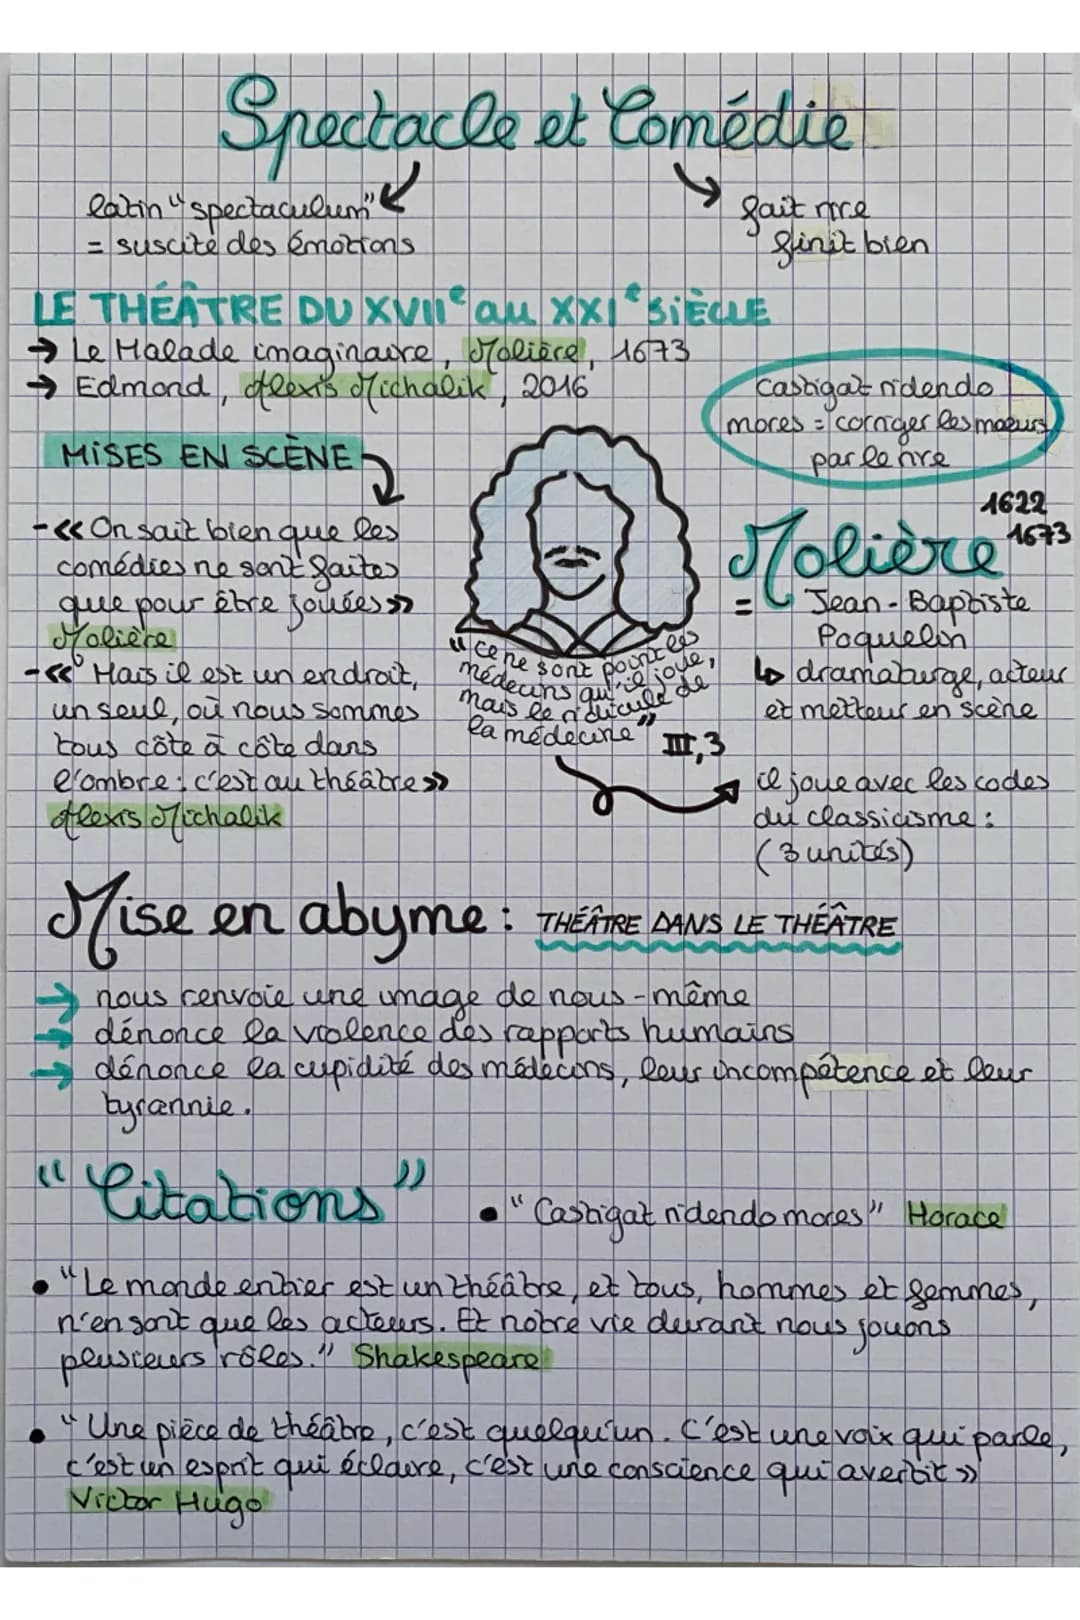 Spectacle et Comédie
latin "spectaculum"
= suscite des émotions
fait rire
finit bien
LE THÉÂTRE DU XVIIe au XXIe SIÈCLE
→ Le Malade imaginaire, Molière, 1673
→ Edmond, Alexis Michalik, 2016
Castigat ridendo
mores = corriger les moeurs
par le rire
MISES EN SCÈNE
- « On sait bien que les
comédies ne sont faites
que pour être jouées »
Molière
- « Mais il est un endroit,
un seul, où nous sommes
tous côte à côte dans
l'ombre : c'est au théâtre »
Alexis Michalik
"ce ne sont point les
médecins qu'il joue,
mais le ridicule de
la médecine"
III, 3
1622
1673
Molière
= Jean-Baptiste
Poquelin
↳ dramaturge, acteur
et metteur en scène
il joue avec les codes
du classicisme :
(3 unités)
Mise en abyme : THÉÂTRE DANS LE THÉÂTRE
→ nous renvoie une image de nous-même
→ dénonce la violence des rapports humains
→ dénonce la cupidité des médecins, leur incompétence et leur
tyrannie.
"Citations"
• "Castigat ridendo mores" Horace
• "Le monde entier est un théâtre, et tous, hommes et femmes,
n'en sont que les acteurs. Et notre vie durant nous jouons
plusieurs rôles." Shakespeare
• "Une pièce de théâtre, c'est quelqu'un. C'est une voix qui parle,
c'est un esprit qui éclaire, c'est une conscience qui avertit »
Victor Hugo